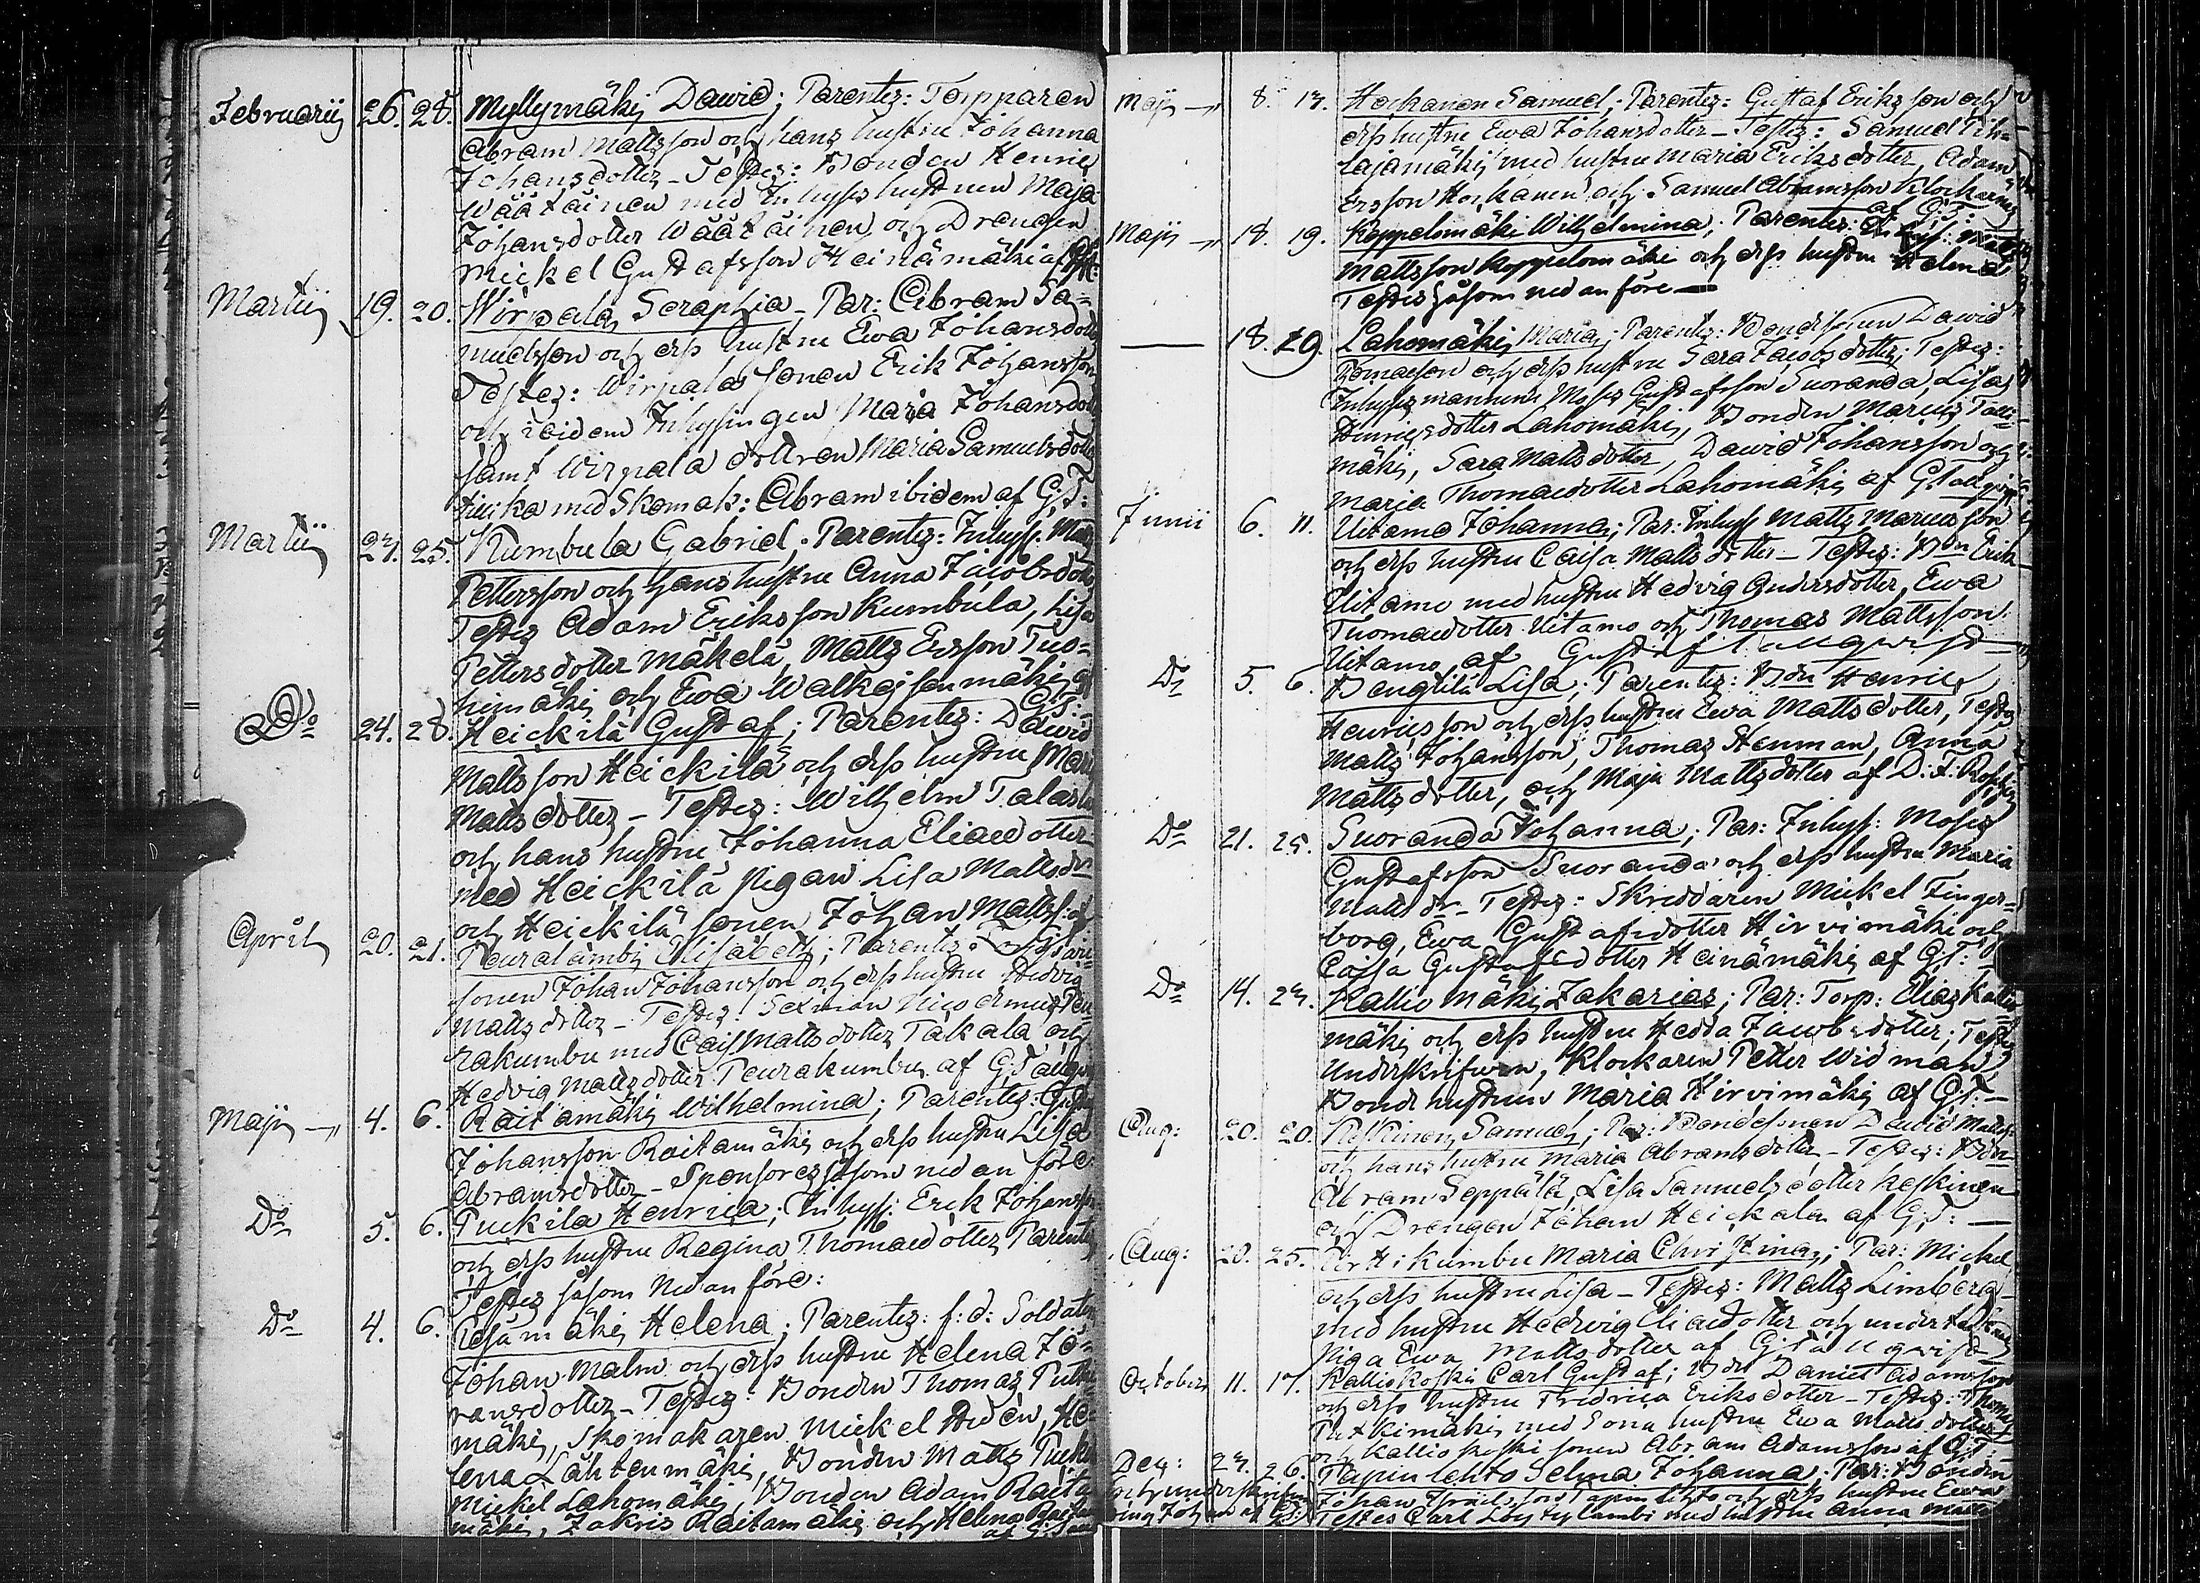 Februarij 26. 28. Myllymäki, Dawid; Parentes: Torpparen
Abram Mattsson och hans hustru Johanna
Johansdotter – Testes: Bonden Henric
Wäätäinen med Inhyses hustrun Maja
Johansdotter Wäätäinen och Drengen
Mickel Gustafsson Heinämäki af
Martij 19. 20. Wirpala, Seraphia – Par: Abram Sa=
muelsson och dess hustru Ewa Johansdott
Testes: Wirpala sonen Erik Johansson
och ibidem Inhysingen Maria Johansdott
samt Wirpala dottren Maria Samuelsdott
med Skomak: Abram ibidem af G:T:
Martij 24. 25. Kumbula Gabriel; Parentes: Inhys. Matts
Pettersson och hans hustru Anna Jacobsdott
Testes Adam Eriksson Kumbula, Lisa
Pettersdotter Mäkelä, Matts Ersson Tuo=
himäki och Ewa Walkejsenmäki af
G:T:
Do 24. 28. Heickilä Gustaf; Parentes: Dawid
Mattsson Heickilä och dess hustru Mari
Mattsdotter – Testes: Wilhelm Talas
och hans hustru Johanna Eliaedotter
med Heickilä Pigan Lisa Mattsdr
och Heickilä sonen Johan Mattss: af
April 20. 21. Peuralambi Elisabeth; Parentes:
sonen Johan Johansson och dess hustru Hedvig
Mattsdotter – Testes: Sexman Nicodemus Peu
rakumbu med Caisa Mattsdotter Takala och
Hedvig Mattsdotter Peurakumbu af G Tallgre
Maji 4. 6. Raitamäki Wilhelmina; Parentes: Gust
Johansson Raitamäki och dess hustru Lisa
Abramsdotter – Sponsores såsom nedanföre
Do 5. 6. Puckila Henrica; Inhys: Erik Johansson
och dess hustru Regina Thomaedotter Parentes
Testes såsom Nedanföre:
Do 4. 6. Pesämäki, Helena; Parentes: f: d: Soldaten
Johan Malm och dess hustru Helena Jo=
hansdotter – Testes: Bonden Thomas Putki
mäki, Skomakaren Mickel Hedén, He=
lena Lähteenmäki, Bonden Matts Puckil
Mickel Lahomäki, Bonden Adam Raita
mäki, Zakris Raitamäki och Helena Raita
Maji 8. 13. Heikanen Samuel; Parentes: Gustaf Eriksson och
dess hustru Ewa Johansdotter – Testes: Samuel Pih=
lajamäki med hustru Maria Eriksdotter, Adam
Ersson Heikanen och Samuel Abramsson Klockarens
af G:T:
Maji 18. 19. Koppelomäki Wilhelmina; Parentes: Inhys: Matts
Mattsson Koppelomäki och dess hustru Helena
Testes såsom nedanföre –
18. 19. Lahomäki, Maria; Parentes: Bondesonen Dawid
Tomaeson och dess hustru Sara Jacobsdotter; Testes:
Inhyses mannen Moses Gustafsson Suoranda, Lisa
Henricsdotter Lahomäki, Bonden Marcus Talli=
mäki, Sara Mattsdotter, Dawid Johansson och
Maria Thomaedotter Lahomäki af G Tallqvist
Junii 6. 11. Uitamo Johanna; Par: Inhyss Matts Marcusson
och dess hustru Caisa Mattsdotter – Testes: Bon Erik
Uitamo med hustru Hedvig Andersdotter, Ewa
Thomaedotter Uitamo och Thomas Mattsson
Uitamo, af Gustaf Tallqwist –
Do 5. 6. Bengtilä Lisa; Parentes: Bon Henric
Henricsson och dess hustru Ewa Mattsdotter, Testes
Matts Johansson, Thomas Stenman, Anna
Mattsdotter, och Maja Mattsdotter af D: F:
Do 21. 25. Suoranda Johanna; Par: Inhyss: Moses
Gustafsson Suoranda och dess hustru Maria
Mattsdr – Testes: Skreddaren Mickel Finger=
borg, Ewa Gustafsdotter Hirvimäki och
Caisa Gustafsdotter Heinämäki af G:T:
Do 14. 24. Kalliomäki, Zakarias; Par: Torp: Elias Kallio
mäki och dess hustru Hedda Jacobsdotter; Testes
Underskrifwen, Klockaren Petter Widman,
Bondehustrun Maria Hirvimäki af G:T: –
Aug: 20. 20. Keskinen, Samuel; Par: Bondesonen Dawid Matts:
och hans hustru Maria Abramsdotter – Testes: Bon
Abram Seppälä, Lisa Samuelsdotter Keskinen
och Drengen Johan Heickala af G:T: –
Aug: 20. 25. Maria Christina; Par: Mickel
och dess hustru Lisa – Testes: Matts Limberg
med hustru Hedvig Eliaedotter och
Piga Ewa Mattsdotter af G Tallqwist
October 11. 17. Kallioskoski Carl Gustaf; Bdn Daniel Adamsson
och dess hustru Fredrica Eriksdotter – Testes: Thomas
Putkimäki med Sona hustru Ewa Mattsdotter
och Kallioskoski sonen Abram Adamsson af G:T:
Dec: 24. 26. Papinlehto Selma Johanna; Par: Bonden
Johan Israelsson Papinlehto och dess hustru Ewa
Testes Carl med hustru Anna Matts